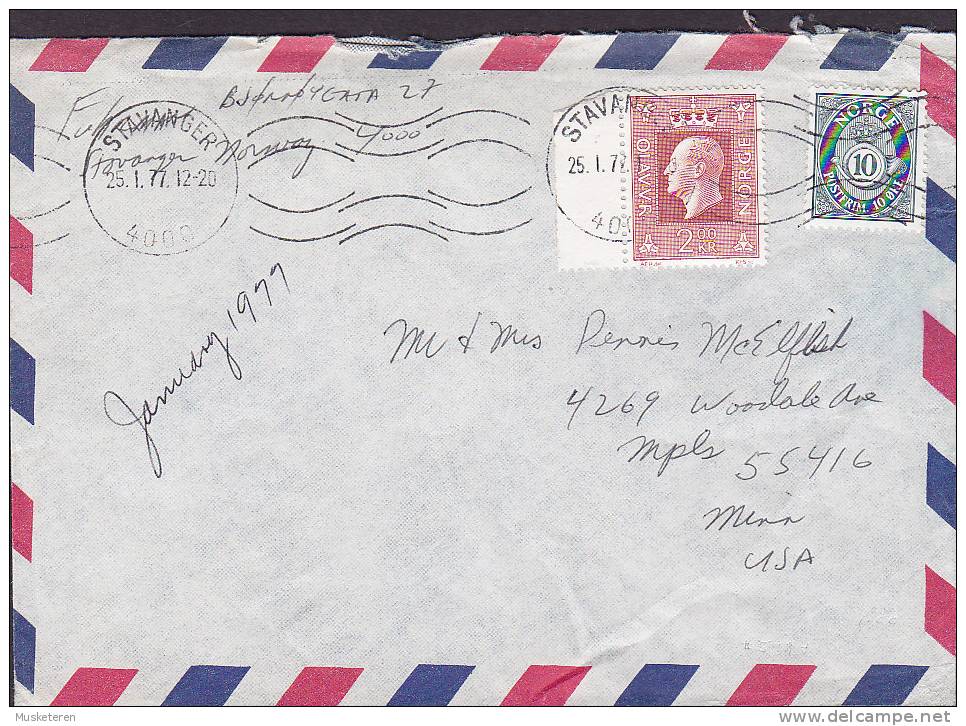 BJØRNØYGATA 27
Stavanger Norway 4000
STAVANGER
25.1.77.12-20
4000
STAVAN
25.1.77.
400
OLAV V R
NORGE
2.00
KR
NORGE
10
POSTFRIM. 10 ØRE
January 1977
Mr & Mrs Dennis McElfish
4269 Woodale Ave
Mpls 55416
Minn
USA
Musketeren
delcampe.net